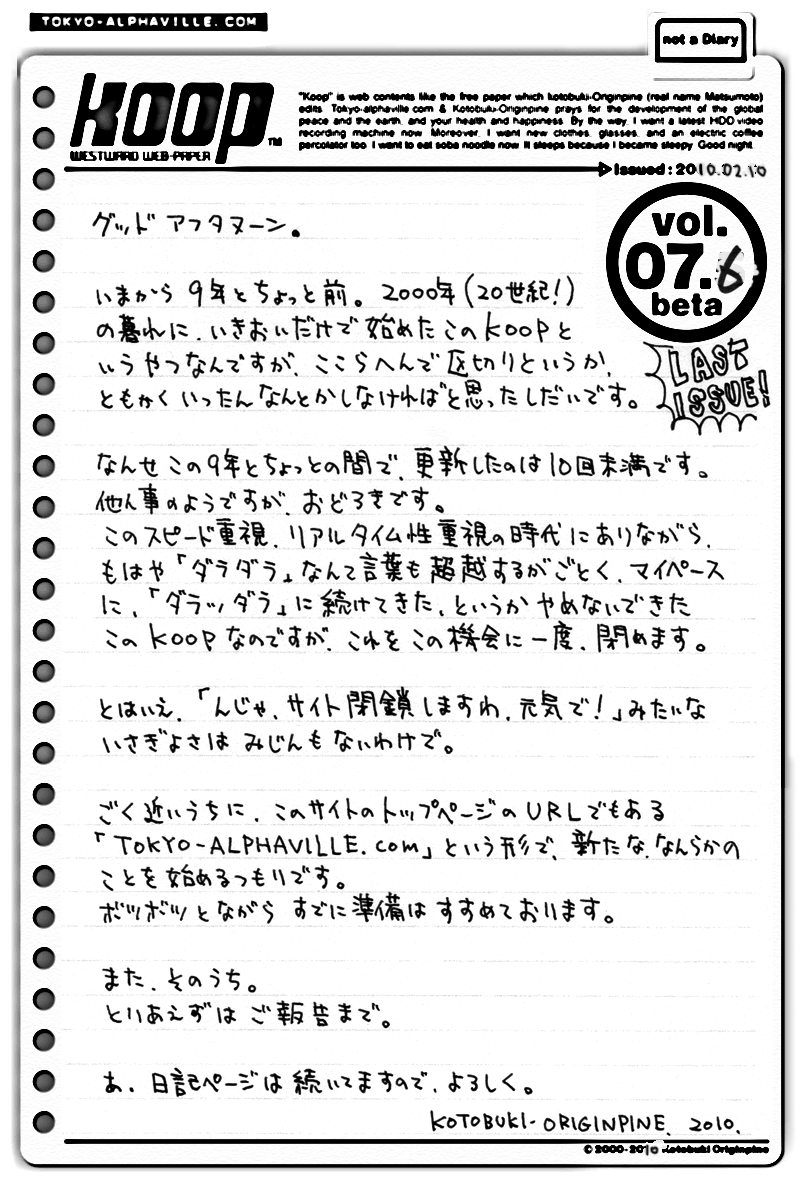 TOKYO-ALPHAVILLE.COM
not a Diary
koop™
WESTWARD WEB-PAPER
"Koop" is web contents like the free paper which kotobuki-Originpine (real name Matsumoto)
edits. Tokyo-alphaville.com & Kotobuki-Originpine prays for the development of the global
peace and the earth, and your health and happiness. By the way, I want a latest HDD video
recording machine now. Moreover, I want new clothes, glasses, and an electric coffee
percolator too. I want to eat soba noodle now. It sleeps because I became sleepy. Good night.
Issued : 2010.02.10
vol.
07.6
beta
LAST
ISSUE!
グッド アフタヌーン。
いまから 9年とちょっと前。2000年(20世紀!)
の暮れに、いきおいだけで始めたこのKOOPと
いうやつなんですが、ここらへんで区切りというか、
ともかくいったんなんとかしなければと思ったしだいです。
なんせこの9年とちょっとの間で、更新したのは10回未満です。
他人事のようですが、おどろきです。
このスピード重視、リアルタイム性重視の時代にありながら、
もはや「ダラダラ」なんて言葉も超越するがごとく、マイペース
に、「ダラッダラ」に続けてきた、というかやめないできた
このKOOPなのですが、これをこの機会に一度、閉めます。
とはいえ、「んじゃ、サイト閉鎖しますわ、元気で!」みたいな
いさぎよさはみじんもないわけで。
ごく近いうちに、このサイトのトップページのURLでもある
「TOKYO-ALPHAVILLE.com」という形で、新たな、なんらかの
ことを始めるつもりです。
ボツボツとながらすでに準備はすすめております。
また、そのうち。
とりあえずはご報告まで。
あ、日記ページは続いてますので、よろしく。
KOTOBUKI-ORIGINPINE. 2010.
© 2000-2010 Kotobuki Originpine